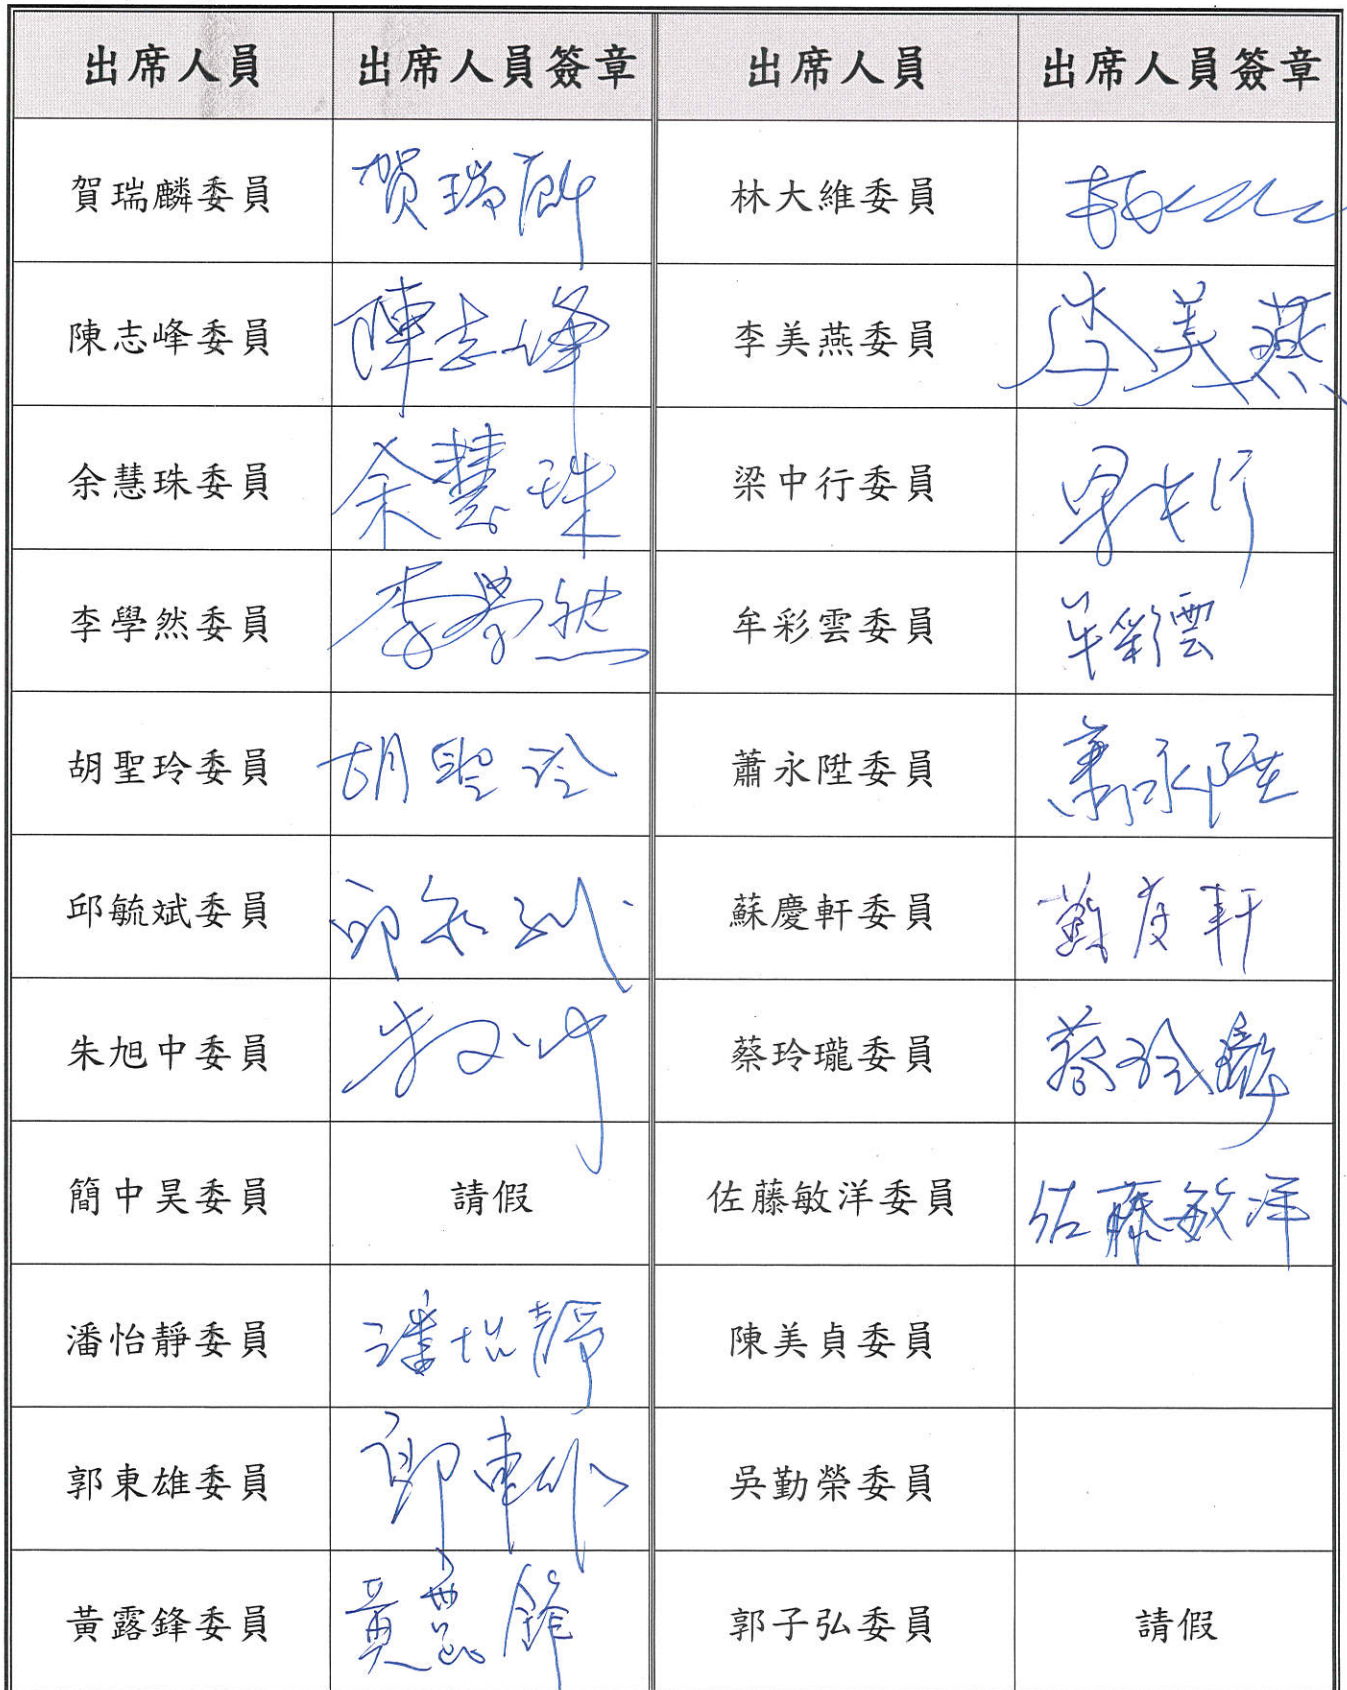 出席人員 出席人員簽章 出席人員 出席人員簽章
賀瑞麟委員 賀瑞麟 林大維委員
陳志峰委員 陳志峰 李美燕委員 李美燕
余慧珠委員 余慧珠 梁中行委員 梁中行
李學然委員 李學然 牟彩雲委員 牟彩雲
胡聖玲委員 胡聖玲 蕭永陞委員 蕭永陞
邱毓斌委員 邱毓斌 蘇慶軒委員 蘇慶軒
朱旭中委員 朱旭中 蔡玲瓏委員 蔡玲瓏
簡中昊委員 請假 佐藤敏洋委員 佐藤敏洋
潘怡靜委員 潘怡靜 陳美貞委員
郭東雄委員 郭東雄 吳勤榮委員
黃露鋒委員 黃露鋒 郭子弘委員 請假